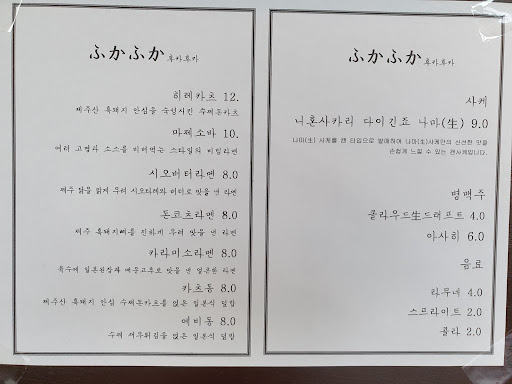 ふかふか 후카후카
히레카츠 12.
제주산 흑돼지 안심을 숙성시킨 수제돈카츠
마제소바 10.
여러 고명과 소스를 비벼먹는 스타일의 비빔라멘
시오버터라멘 8.0
제주 닭을 맑게 우려 시오타레와 버터로 맛을 낸 라멘
돈코츠라멘 8.0
제주 흑돼지뼈를 진하게 우려 맛을 낸 라멘
카라미소라멘 8.0
육수에 일본된장과 매운고추로 맛을 낸 얼큰한 라멘
카츠동 8.0
제주산 흑돼지 안심 수제돈카츠를 얹은 일본식 덮밥
에비동 8.0
수제 새우튀김을 얹은 일본식 덮밥
ふかふか 후카후카
사케
니혼사카리 다이긴죠 나마(生) 9.0
나마(生) 사케를 캔 타입으로 발매하여 나마(生)사케만의 신선한 맛을
손쉽게 느낄 수 있는 캔사케입니다.
병맥주
클라우드生드래프트 4.0
아사히 6.0
음료
라무네 4.0
스프라이트 2.0
콜라 2.0